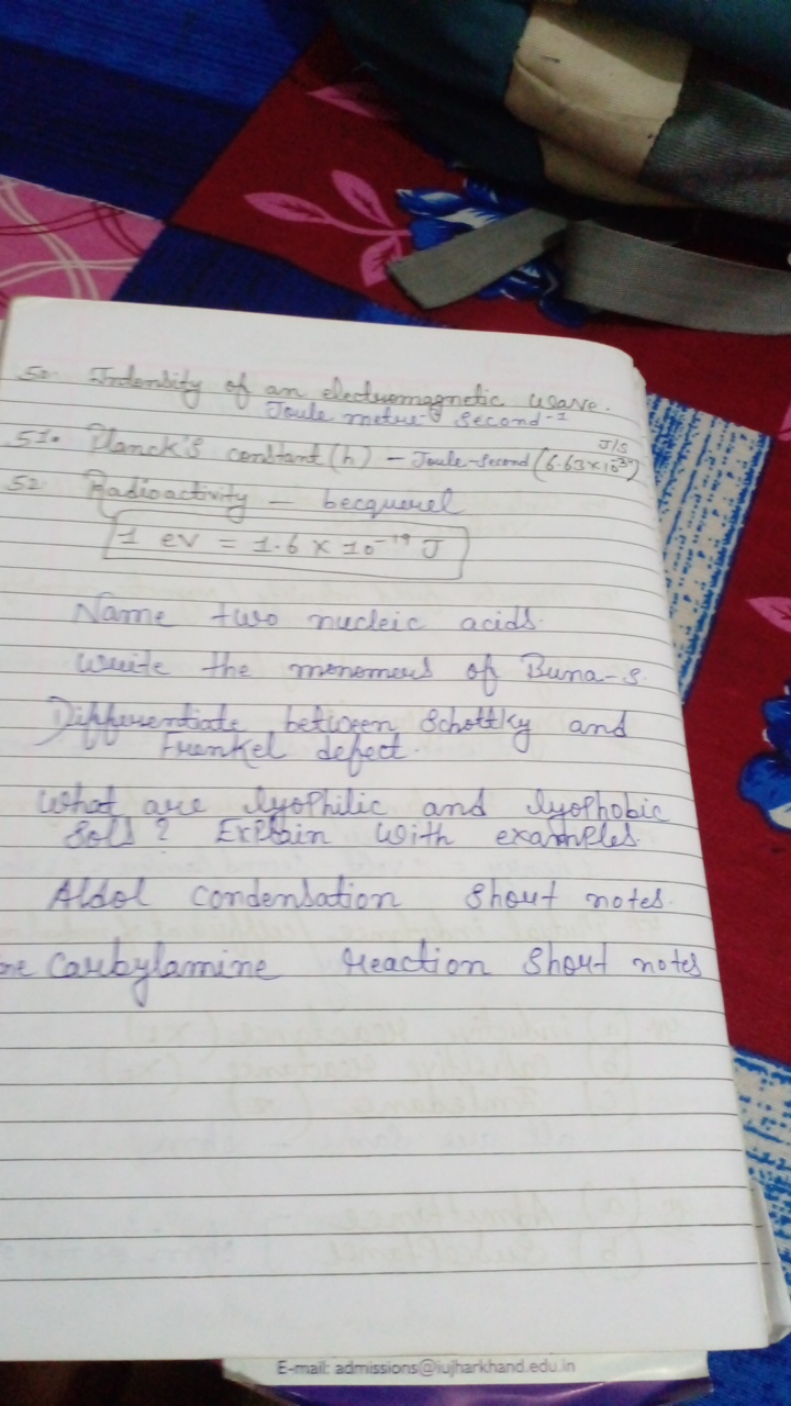 50. Intensity of an electromagnetic wave.
Joule metre⁻² second⁻¹
51. Planck's constant (h) - Joule-second (6.63×10⁻³⁴) J/S
52 Radioactivity - becquerel
1 ev = 1.6 × 10⁻¹⁹ J
Name two nucleic acids.
Write the monomers of Buna-S.
Differentiate between Schottky and
Frenkel defect.
What are lyophilic and lyophobic
Sols? Explain with examples.
Aldol condensation short notes.
Carbylamine reaction short notes
E-mail: admissions@iujharkhand.edu.in